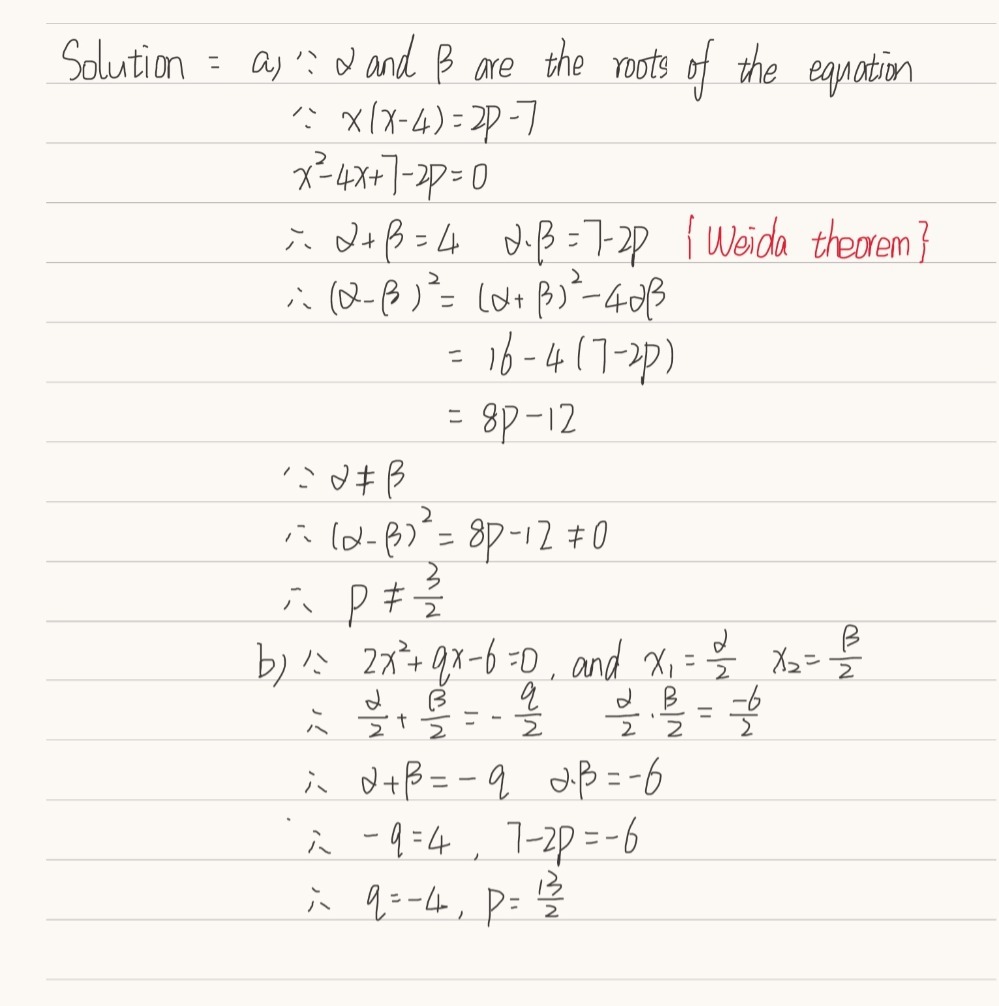 Solution = a) ∵ α and β are the roots of the equation
∵ x(x-4)=2p-7
x²-4x+7-2p=0
∴ α+β=4 α·β=7-2p {Weida theorem}
∴ (α-β)²=(α+β)²-4αβ
= 16-4(7-2p)
= 8p-12
∵ α≠β
∴ (α-β)²=8p-12≠0
∴ p≠3/2
b) ∵ 2x²+qx-6=0, and x₁=α/2 x₂=β/2
∴ α/2+β/2=-q/2 α/2·β/2=-6/2
∴ α+β=-q α·β=-6
∴ -q=4, 7-2p=-6
∴ q=-4, p=13/2